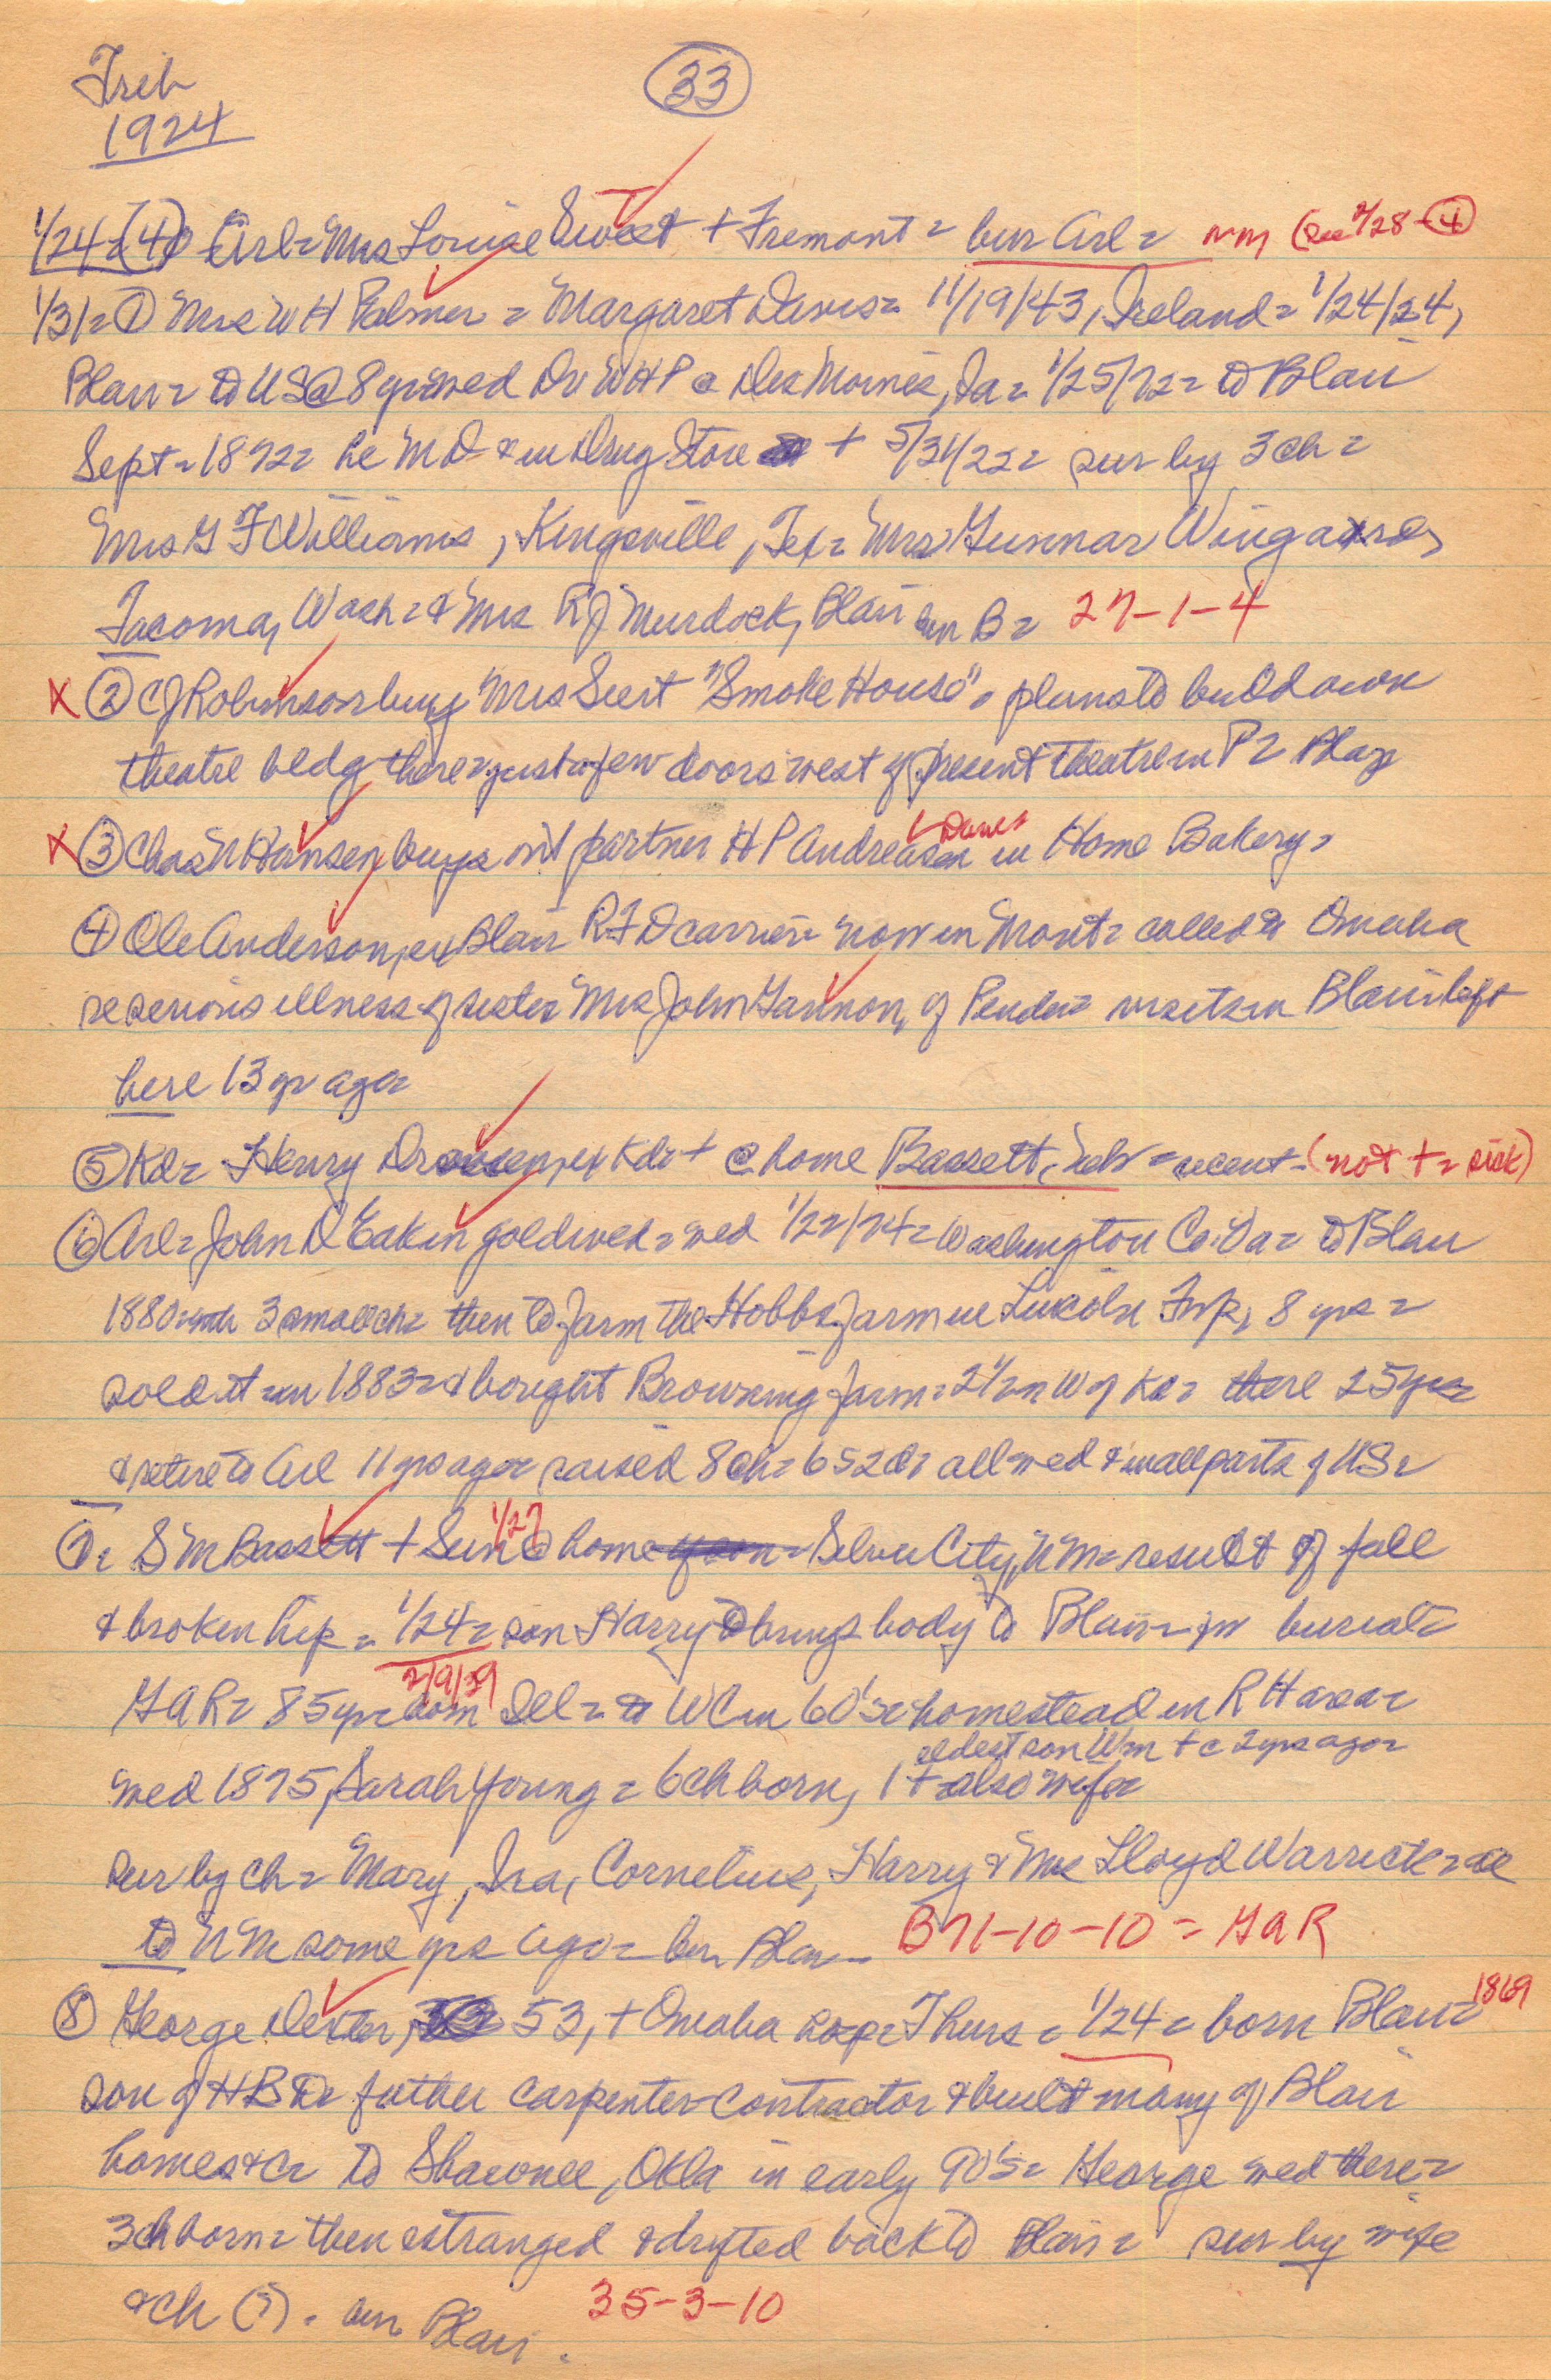 Trib
33
1924
1/24=(4) Arl= Mrs Louise Sweet + Fremont = bur Arl = nm (see 2/28-4
1/31= 1 Mrs W H Palmer = Margaret Davis= 11/19/43, Ireland= 1/24/24,
Blair= to US @ 8 yr= wed Dr WHP @ Des Moines, Ia= 1/25/72= to Blair
Sept=1892= he MD & in Drug Store + 5/31/22= sur by 3 ch=
Mrs G F Williams, Kingsville, Tex= Mrs Gunnar Wingaard,
Tacoma, Wash= & Mrs R J Murdock, Blair bur B= 27-1-4
X 2 C J Robinson buys Mrs Seert "Smoke House"= plans to build own
theatre bldg there= just a few doors west of present theatre in
X 3 Chas N Hansen buys out partner H P Andreasen in Home Bakery=
4 Ole Anderson, ex Blair RFD carrier= now in Mont= called to Omaha
re serious illness of sister Mrs John Gannon, of Pender= visits in Blair= left
here 13 yr ago=
5 Kd= Henry ex Kd= + @ home Bassett, Neb = recent- (not += sick)
6 Arl= John D Eakin gold wed= wed 1/22/74= Washington Co. = to Blair
1880= with 3 small ch= then to farm the Hobbs farm in Lincoln Twp, 8 yrs=
sold it in 1883= & bought Browning farm= 2 1/2 m W of Kd= there 25 yrs=
& retire to Arl 11 yrs ago= raised 8 ch= 6 s 2 d= all wed & in all parts of US=
7= S M Bassett + Sun 1/27 @ home = Silver City, N M= result of fall
& broken hip = 1/24= son Harry D brings body to Blair= for burial=
G A R= 85 yr= born 2/9/39 Ill= to WC in 60's= homestead in R H area=
eldest son Wm + c 2 yrs ago=
wed 1875, Sarah Young = 6 ch born, 1 += also wife=
sur by ch= Mary, Ira, Cornelius, Harry & Mrs Lloyd Warrick= all
to N M some yrs ago= bur Blair= B 71-10-10 = G A R
8 George Dexter, 53, + Omaha hosp= Thurs = 1/24= born Blair= 1869
son of H B D= father carpenter-contractor & built many of Blair
homes &c= to Shawnee, Okla in early 90's= George wed there=
3 ch born= then estranged & drifted back to Blair= sur by wife
& ch (?). bur Blair. 35-3-10